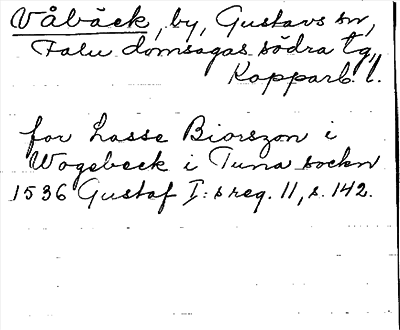 Våbäck, by, Gustavs sn,
Falu domsagas södra tg,
Kopparb. l.
for Lasse Biorszon i
Wogebeck i Tuna sockn
1536 Gustaf I:s reg. 11, s. 142.